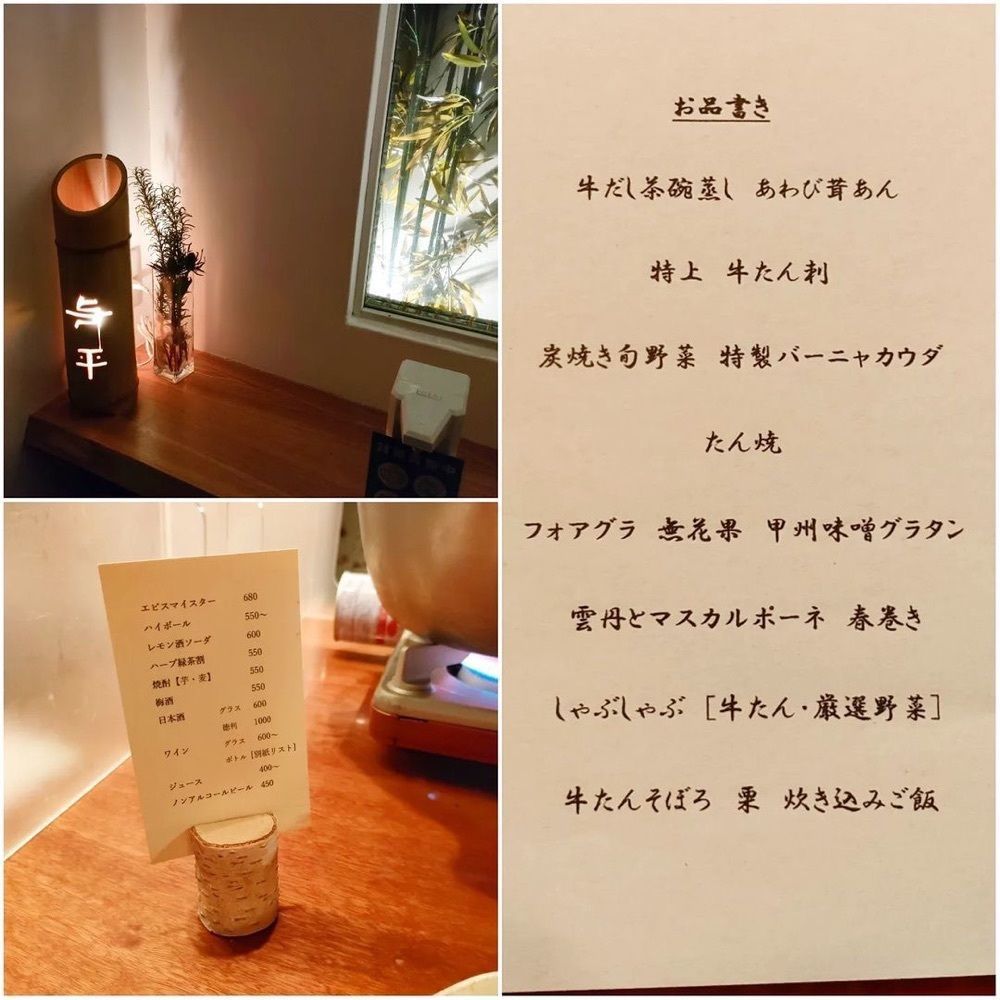 与
平
お品書き
牛だし茶碗蒸し あわび茸あん
特上 牛たん刺
炭焼き旬野菜 特製バーニャカウダ
たん焼
フォアグラ 無花果 甲州味噌グラタン
雲丹とマスカルポーネ 春巻き
しゃぶしゃぶ [牛たん・厳選野菜]
牛たんそぼろ 栗 炊き込みご飯
エビスマイスター 680
ハイボール 550~
レモン酒ソーダ 600
ハーブ緑茶割 550
焼酎【芋・麦】 550
梅酒 550
日本酒 グラス 600
徳利 1000
ワイン グラス 600~
ボトル [別紙リスト]
ジュース 400~
ノンアルコールビール 450